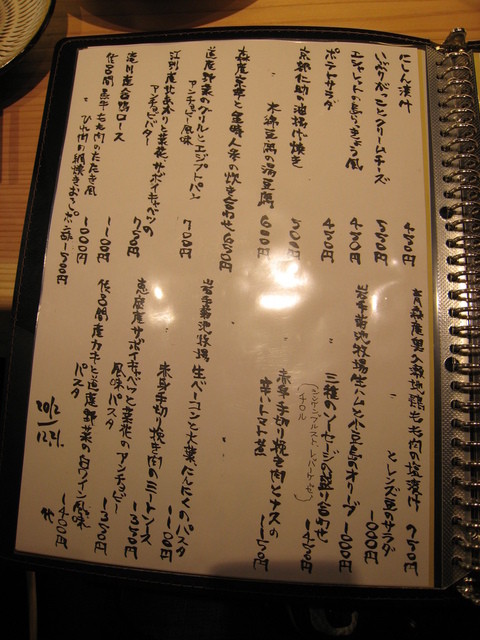 にしん漬け 450円
いぶりがっことクリームチーズ 550円
エシャレットの島らっきょう風 450円
ポテトサラダ 450円
京都仁助の油揚げ焼き 500円
〃 木綿豆腐の湯豆腐 600円
森産菜と金時人参の炊き合わせ 650円
道産野菜のグリル・エジプトパンと
アンチョビ風味 700円
江別産北あかりと菜花、サボイキャベツの
アンチョビバター 750円
滝川産合鴨ロース 1100円
佐呂間黒牛もも肉のたたき風 1000円
〃 ひれ肉の網焼きおろしポン酢 1500円
青森産
塩漬け
とレンズ豆のサラダ 1000円
岩手菊池牧場生ハムと小豆島のオリーブ 1000円
〃 三種のソーセージの盛り合わせ 1450円
〃 赤身手切り挽き肉とナスの
辛いトマト煮 1150円
岩手菊池牧場 生ベーコンと大葉、にんにくのパスタ 1100円
〃 赤身手切り挽き肉のミートソース 1350円
恵庭産サボイキャベツと菜花のアンチョビー
風味パスタ 1350円
佐呂間産カキと道産野菜の白ワイン風味
パスタ 1400円